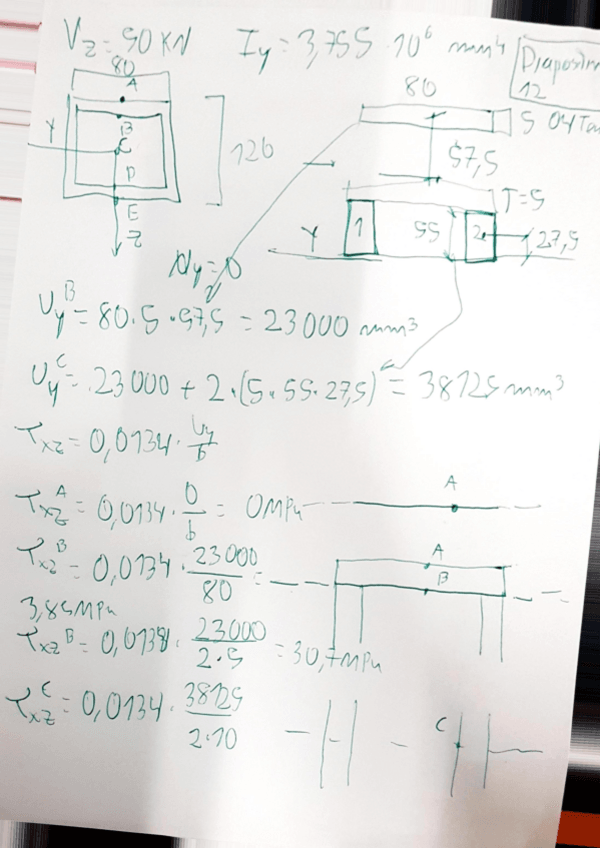 V_z = 50 KN   I_y = 3,755 · 10^6 mm^4
12
80
A
B
C
D
E
Y
z
120
80
5
57,5
T=5
Y
1
55
2
27,5
U_y = 0
U_y^B = 80 · 5 · 57,5 = 23000 mm^3
U_y^C = 23000 + 2 · (5 · 55 · 27,5) = 38125 mm^3
τ_xz = 0,0134 · U_y/b
τ_xz^A = 0,0134 · 0/b = 0 MPa
A
τ_xz^B = 0,0134 · 23000/80 =
A
B
3,85 MPa
τ_xz^B = 0,0134 · 23000/2·5 = 30,7 MPa
τ_xz^C = 0,0134 · 38125/2·10
C